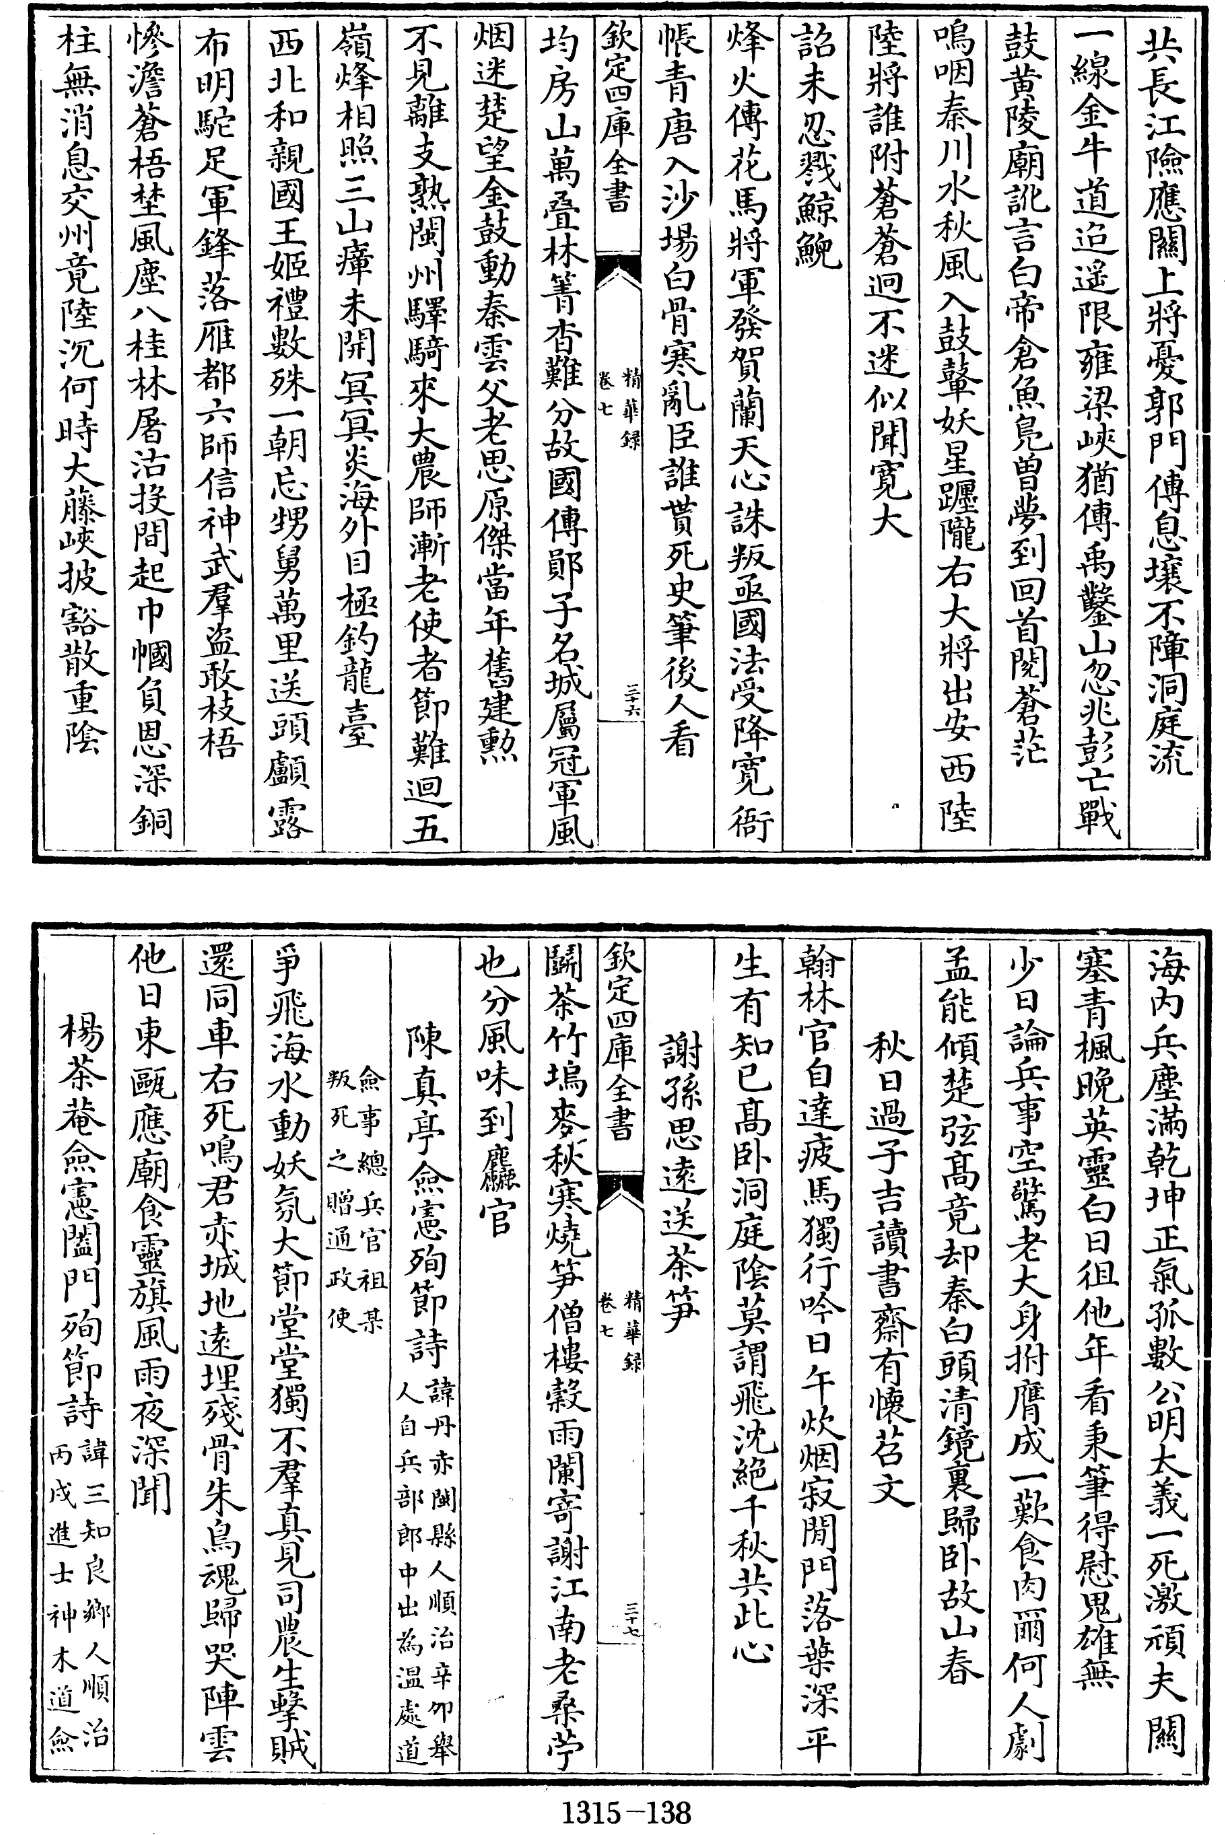 共長江險應關上將憂郭門傳息壤不障洞庭流
一線金牛道迢遥限雍梁峽猶傳禹鑿山忽兆彭亡戰
鼓黄陵廟訛言白帝倉魚鳧曾夢到回首閱蒼茫
嗚咽秦川水秋風入鼓鼙妖星躔隴右大將出安西陸
陸將誰附蒼蒼迥不迷似聞寛大
詔未忍戮鯨鯢
烽火傳花馬將軍發賀蘭天心誅叛亟國法受降寛衙
帳青唐入沙場白骨寒亂臣誰貰死史筆後人看
欽定四庫全書
精華録
卷七
三十六
均房山萬叠林箐杳難分故國傳鄖子名城屬冠軍風
烟迷楚望金鼓動秦雲父老思原傑當年舊建勲
不見離支熟閩州驛騎來大農師漸老使者節難迴五
嶺烽相照三山瘴未開冥冥炎海外目極釣龍臺
西北和親國王姬禮數殊一朝忘甥舅萬里送頭顱露
布明駝足軍鋒落雁都六師信神武羣盗敢枝梧
慘澹蒼梧埜風塵八桂林屠沽投間起巾幗負恩深銅
柱無消息交州竟陸沉何時大藤峽披豁散重陰
海内兵塵滿乾坤正氣孤數公明大義一死激頑夫關
塞青楓晚英靈白日徂他年看秉筆得慰鬼雄無
少日論兵事空驚老大身拊膺成一歎食肉爾何人劇
孟能傾楚弦高竟却秦白頭清鏡裏歸卧故山春
秋日過子吉讀書齋有懷苕文
翰林官自達疲馬獨行吟日午炊烟寂閒門落葉深平
生有知己高卧洞庭陰莫謂飛沈絶千秋共此心
謝孫思遠送茶笋
欽定四庫全書
精華録
卷七
三十七
鬬茶竹塢麥秋寒燒笋僧樓穀雨闌寄謝江南老桑苧
也分風味到麤官
陳真亭僉憲殉節詩
諱丹赤閩縣人順治辛卯舉
人自兵部郎中出為温處道
僉事總兵官祖某
叛死之贈通政使
爭飛海水動妖氛大節堂堂獨不羣真見司農生擊賊
還同車右死鳴君赤城地遠埋殘骨朱鳥魂歸哭陣雲
他日東甌應廟食靈旗風雨夜深聞
楊茶菴僉憲闔門殉節詩
諱三知良鄉人順治
丙戌進士神木道僉
1315-138